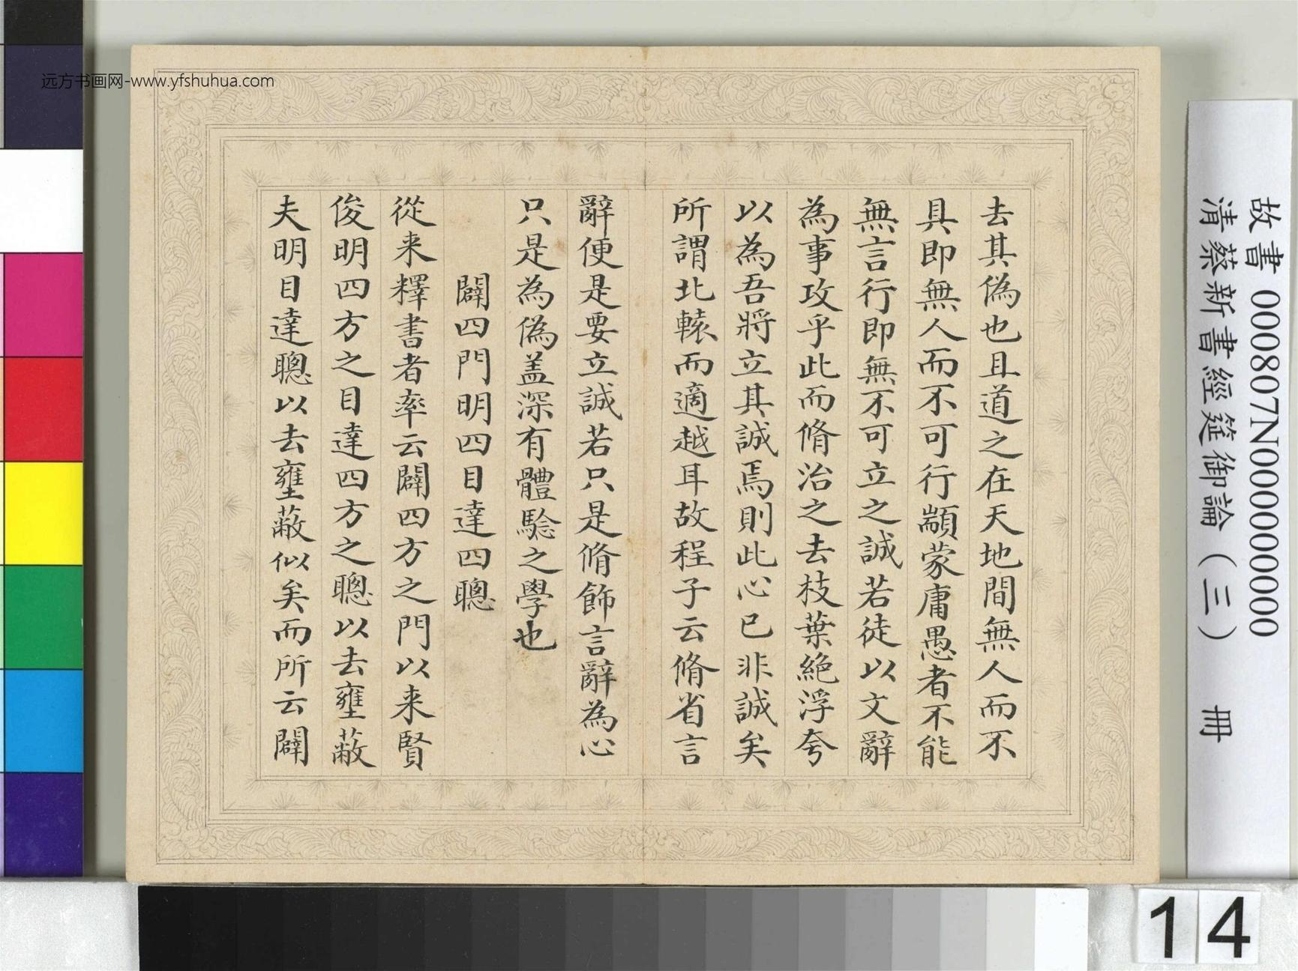 远方书画网-www.yfshuhua.com
去其偽也且道之在天地間無人而不
具即無人而不可行顓蒙庸愚者不能
無言行即無不可立之誠若徒以文辭
為事攻乎此而脩治之去枝葉絶浮夸
以為吾將立其誠焉則此心已非誠矣
所謂北轅而適越耳故程子云脩省言
辭便是要立誠若只是脩飾言辭為心
只是為偽盖深有體驗之學也
闢四門明四目達四聰
從来釋書者率云闢四方之門以来賢
俊明四方之目達四方之聰以去壅蔽
夫明目達聰以去壅蔽似矣而所云闢
故書 000807N000000000
清蔡新書經筵御論(三) 冊
14